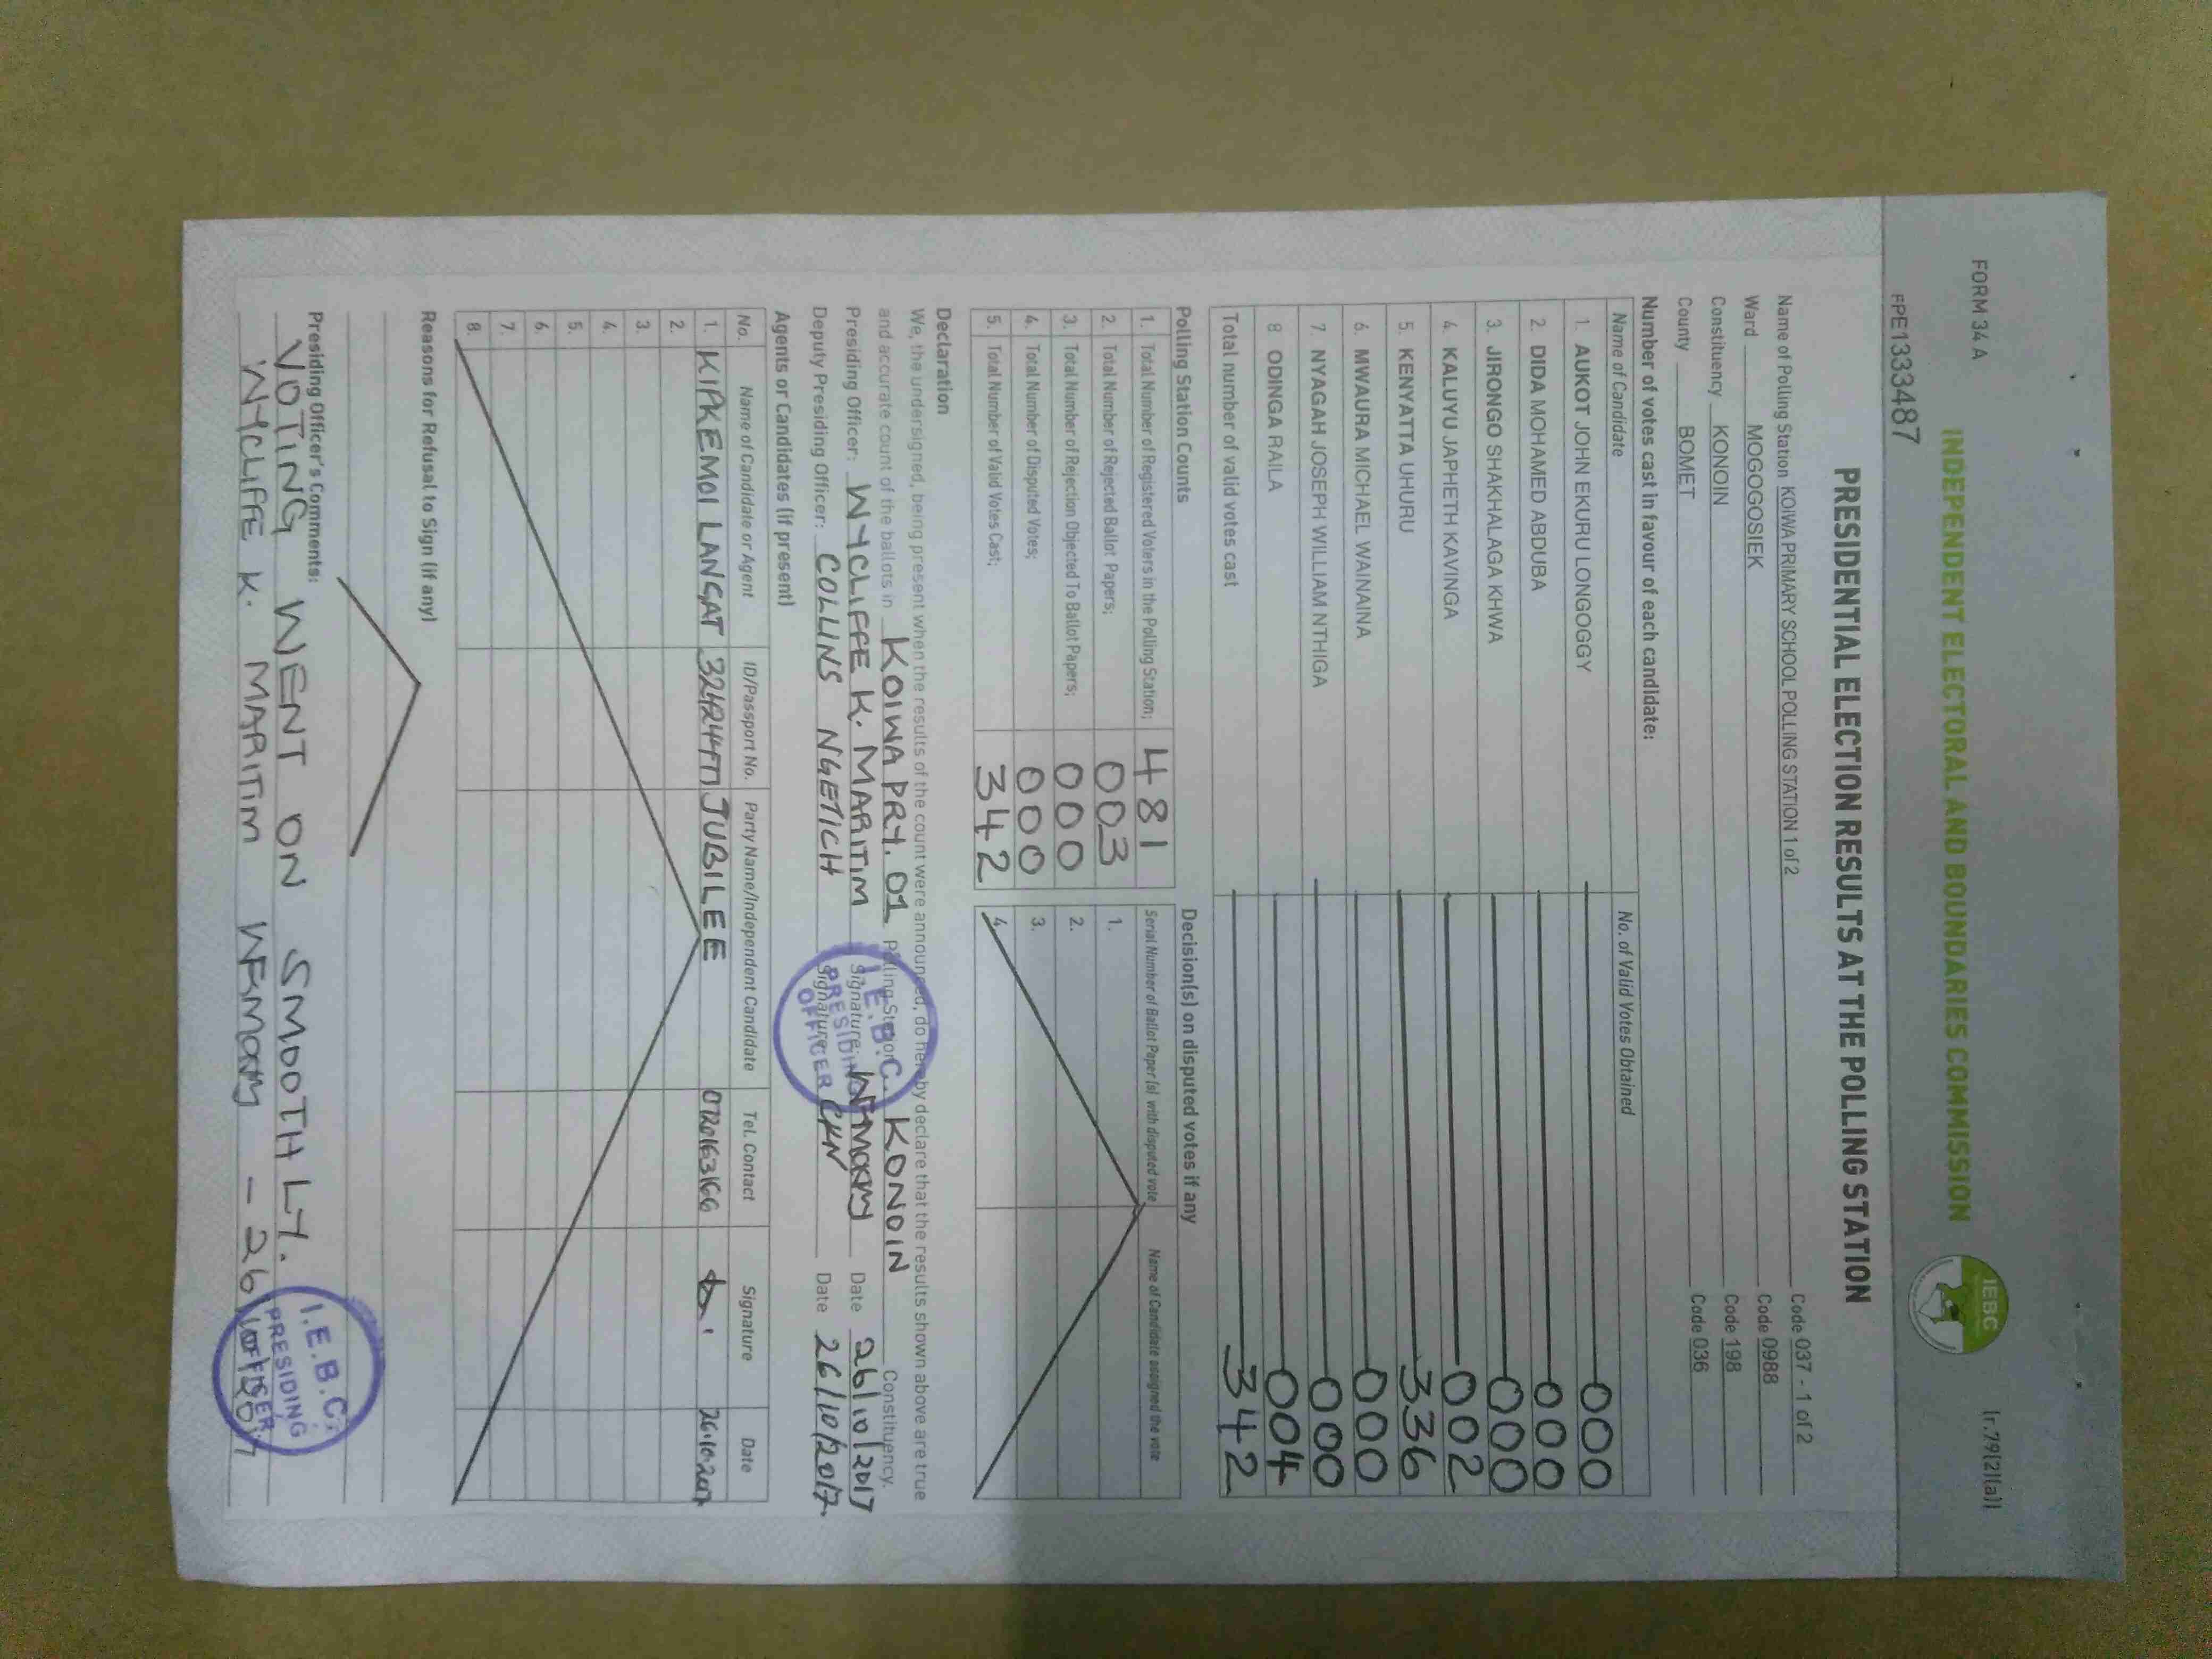 FORM 34 A
(r.79(2)(a))
INDEPENDENT ELECTORAL AND BOUNDARIES COMMISSION
IEBC
FPE1333487
PRESIDENTIAL ELECTION RESULTS AT THE POLLING STATION
Name of Polling Station KOIWA PRIMARY SCHOOL POLLING STATION 1 of 2 Code 037 - 1 of 2
Ward MOGOGOSIEK Code 0988
Constituency KONOIN Code 198
County BOMET Code 036
Number of votes cast in favour of each candidate:
Name of Candidate No. of Valid Votes Obtained
1. AUKOT JOHN EKURU LONGOGGY 000
2. DIDA MOHAMED ABDUBA 000
3. JIRONGO SHAKHALAGA KHWA 000
4. KALUYU JAPHETH KAVINGA 002
5. KENYATTA UHURU 336
6. MWAURA MICHAEL WAINAINA 000
7. NYAGAH JOSEPH WILLIAM NTHIGA 000
8 ODINGA RAILA 004
Total number of valid votes cast 342
Polling Station Counts
1. Total Number of Registered Voters in the Polling Station; 481
2. Total Number of Rejected Ballot Papers; 003
3. Total Number of Rejection Objected To Ballot Papers; 000
4. Total Number of Disputed Votes; 000
5. Total Number of Valid Votes Cast; 342
Decision(s) on disputed votes if any
Serial Number of Ballot Paper (s) with disputed vote Name of Candidate assigned the vote
1.
2.
3.
4.
Declaration
We, the undersigned, being present when the results of the count were announced, do hereby declare that the results shown above are true
and accurate count of the ballots in KOIWA PRY. 01 Polling Station KONOIN Constituency.
Presiding Officer: WYCLIFFE K. MARITIM Signature: Date 26/10/2017
Deputy Presiding Officer: COLLINS NGETICH Signature: CKN Date 26/10/2017
I.E.B.C.
PRESIDING
OFFICER
Agents or Candidates (if present)
No. Name of Candidate or Agent ID/Passport No. Party Name/Independent Candidate Tel. Contact Signature Date
1. KIPKEMOI LANGAT JUBILEE 26.10.2017
2.
3.
4.
5.
6.
7.
8.
Reasons for Refusal to Sign (if any)
Presiding Officer's Comments:
VOTING WENT ON SMOOTHLY.
WYCLIFFE K. MARITIM - 26/10/2017
I.E.B.C.
PRESIDING
OFFICER